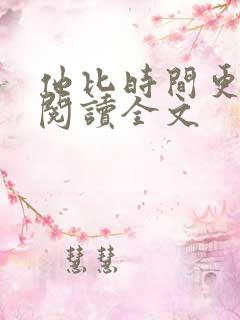 他比時間更
閱讀全文
慧慧